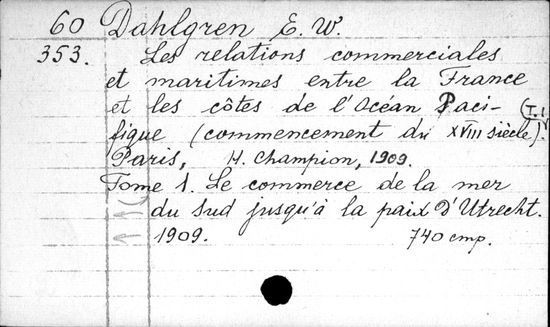 60 Dahlgren E. W.
353. Les relations commerciales
et maritimes entre la France
et les côtes de l'Océan Paci-
fique (commencement du XVIII siècle). (T.1
Paris, H. Champion, 1909.
Tome 1. Le commerce de la mer
du Sud jusqu'à la paix d'Utrecht.
1909. 740 стр.